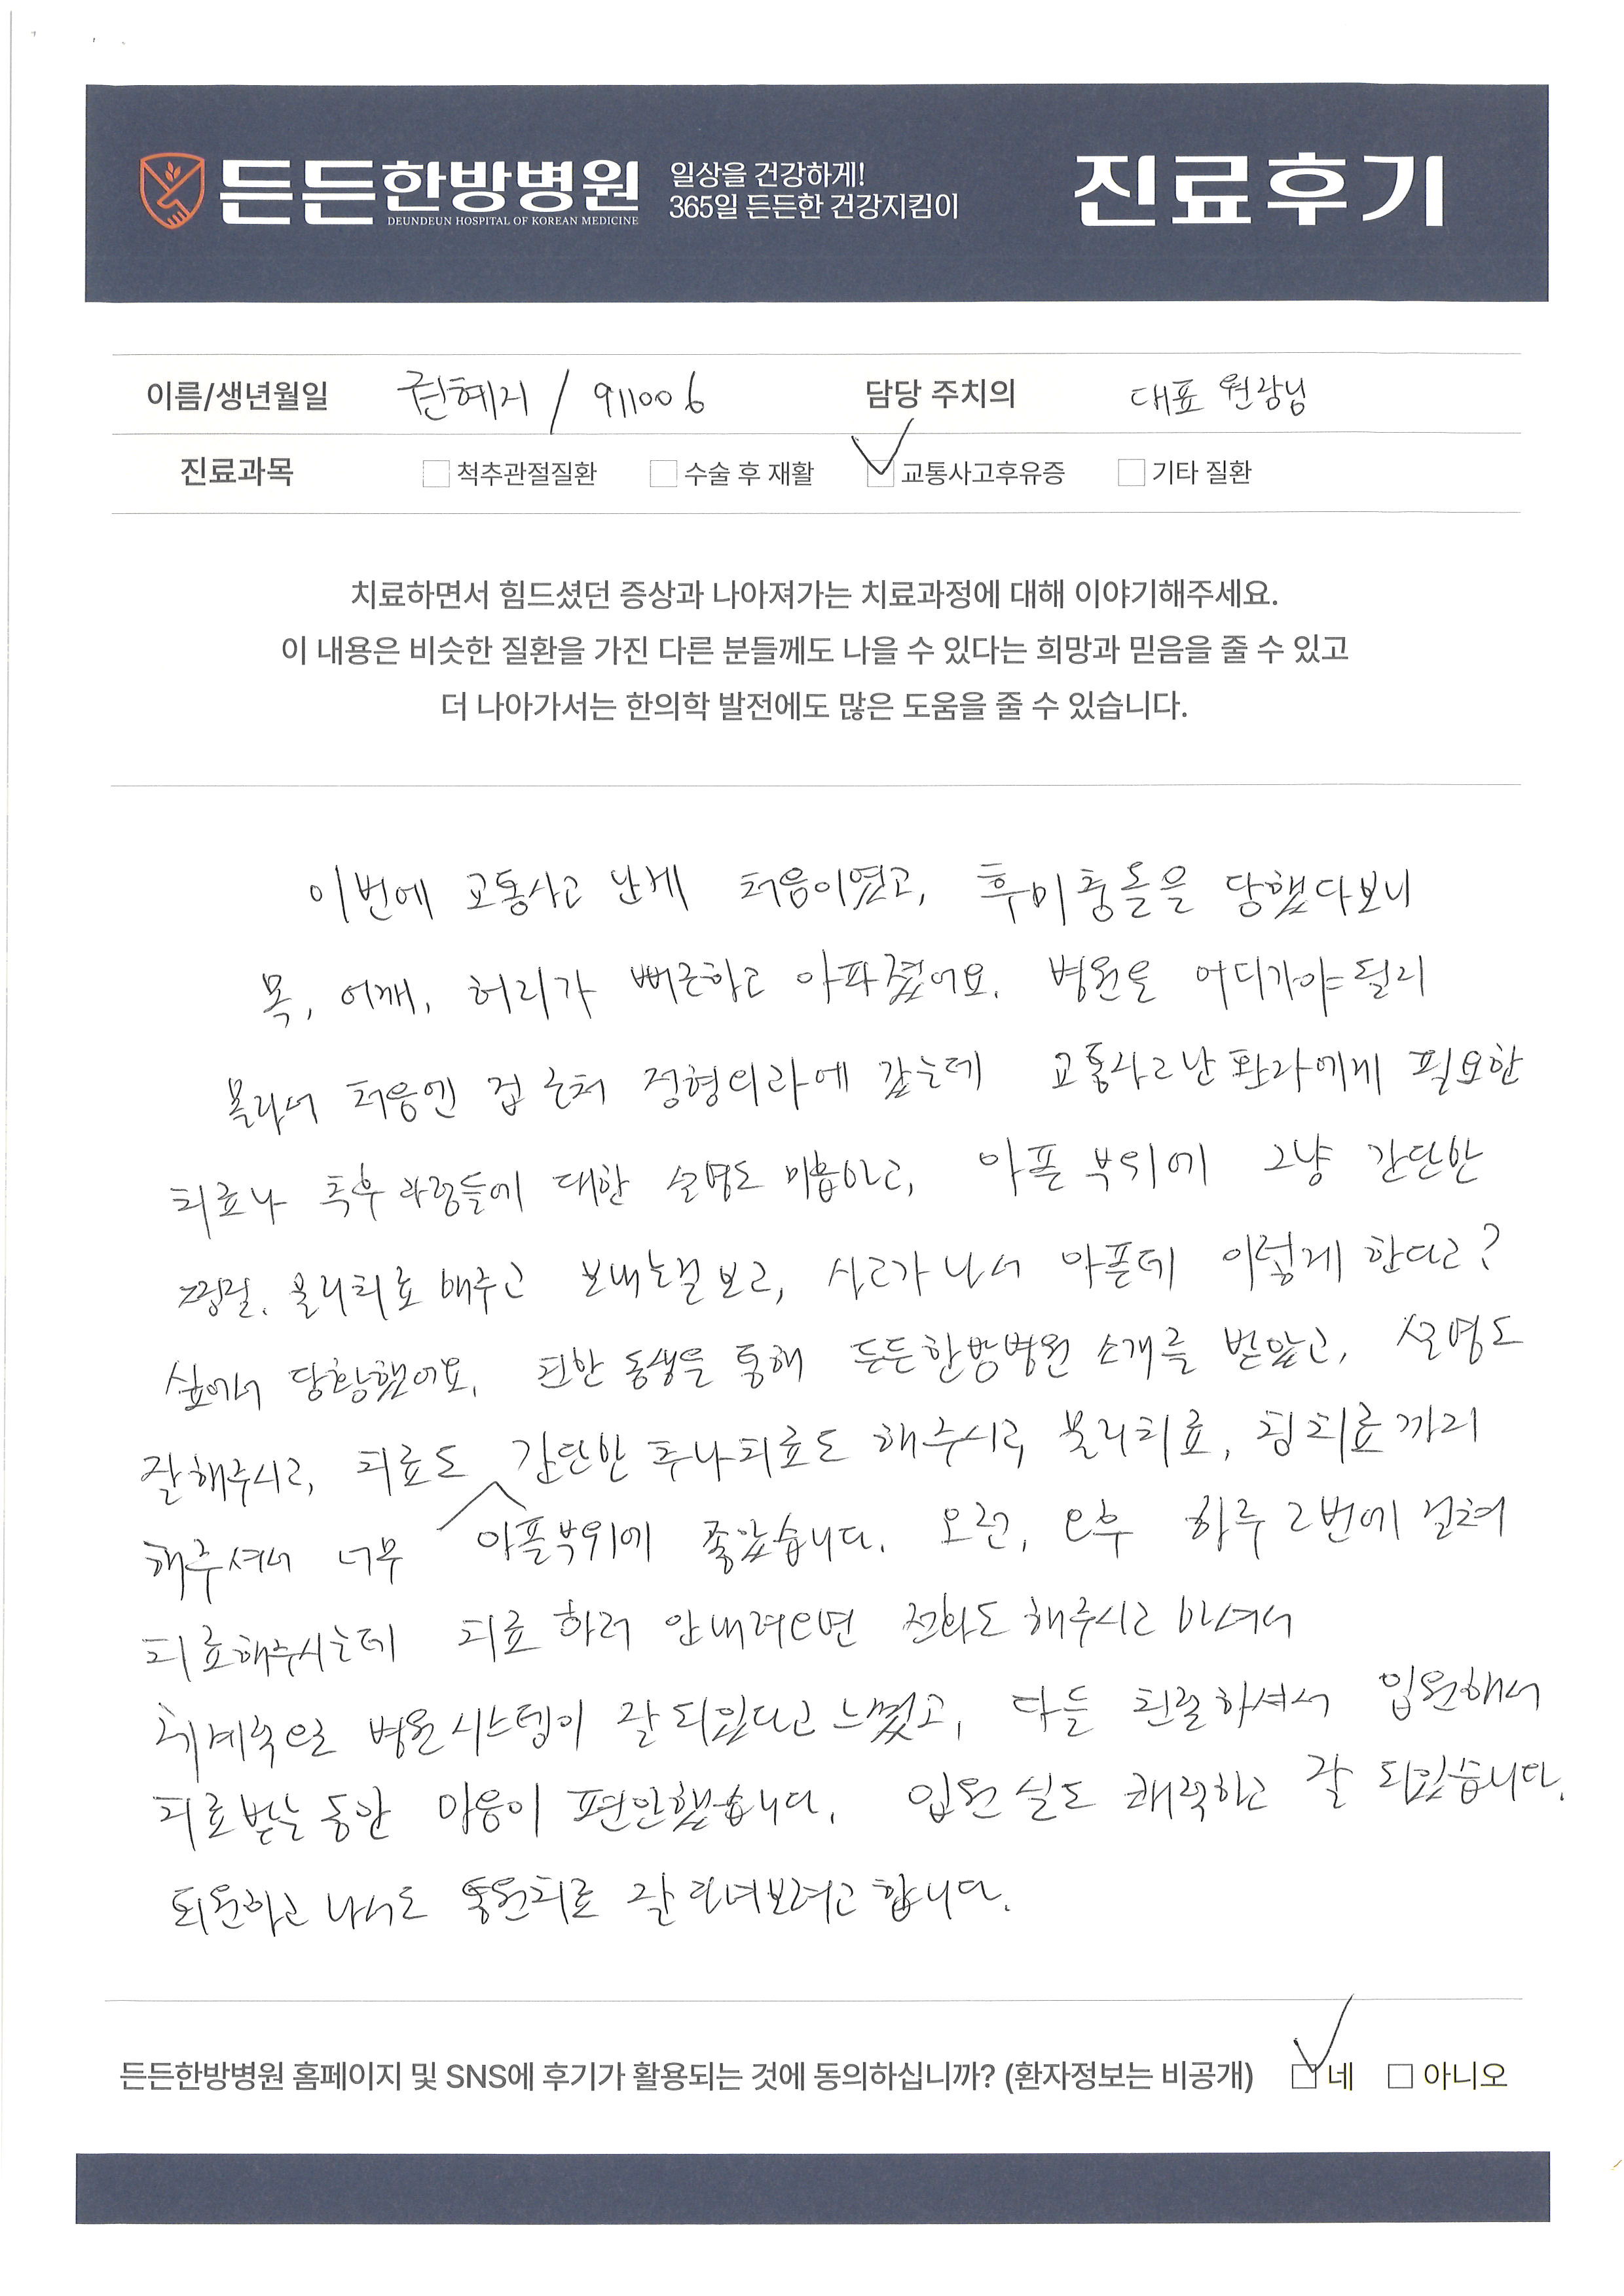 든든한방병원
DEUNDEUN HOSPITAL OF KOREAN MEDICINE
일상을 건강하게!
365일 든든한 건강지킴이
진료후기
이름/생년월일 권혜지 / 911006 담당 주치의 대표 원장님
진료과목 척추관절질환 수술 후 재활 교통사고후유증 기타 질환
치료하면서 힘드셨던 증상과 나아져가는 치료과정에 대해 이야기해주세요.
이 내용은 비슷한 질환을 가진 다른 분들께도 나을 수 있다는 희망과 믿음을 줄 수 있고
더 나아가서는 한의학 발전에도 많은 도움을 줄 수 있습니다.
이번에 교통사고 난게 처음이였고, 후미충돌을 당했다보니
목, 어깨, 허리가 뻐근하고 아파졌어요. 병원을 어디가야될지
몰라서 처음엔 집 근처 정형외과에 갔는데 교통사고난 환자에게 필요한
치료나 추후 과정들에 대한 설명도 미흡하고, 아픈 부위에 그냥 간단한
찜질, 물리치료 해주고 보내는걸 보고, 사고가 나서 아픈데 이렇게 한다고?
싶어서 당황했어요. 친한 동생을 통해 든든한방병원 소개를 받았고, 설명도
잘해주시고, 치료도 간단한 추나치료도 해주시고 물리치료, 침치료까지
해주셔서 너무 아픈부위에 좋았습니다. 오전, 오후 하루 2번에 걸쳐
치료해주시는데 치료 하러 안내려오면 전화도 해주시고 하셔서
체계적으로 병원시스템이 잘 되있다고 느꼈고, 다들 친절하셔서 입원해서
치료받는 동안 마음이 편안했습니다. 입원실도 쾌적하고 잘 되있습니다.
퇴원하고 나서도 통원치료 잘 다녀보려고 합니다.
든든한방병원 홈페이지 및 SNS에 후기가 활용되는 것에 동의하십니까? (환자정보는 비공개) 네 아니오